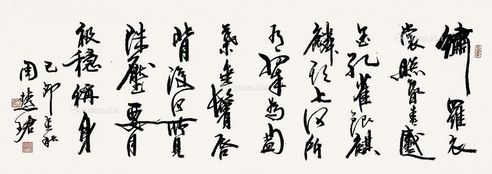 繡羅衣
裳照暮春蹙
金孔雀銀麒
麟頭上何所
有翠為㔩
葉垂鬢唇
背後何所見
珠壓腰
衱穩稱身
己卯孟秋
周慧珺